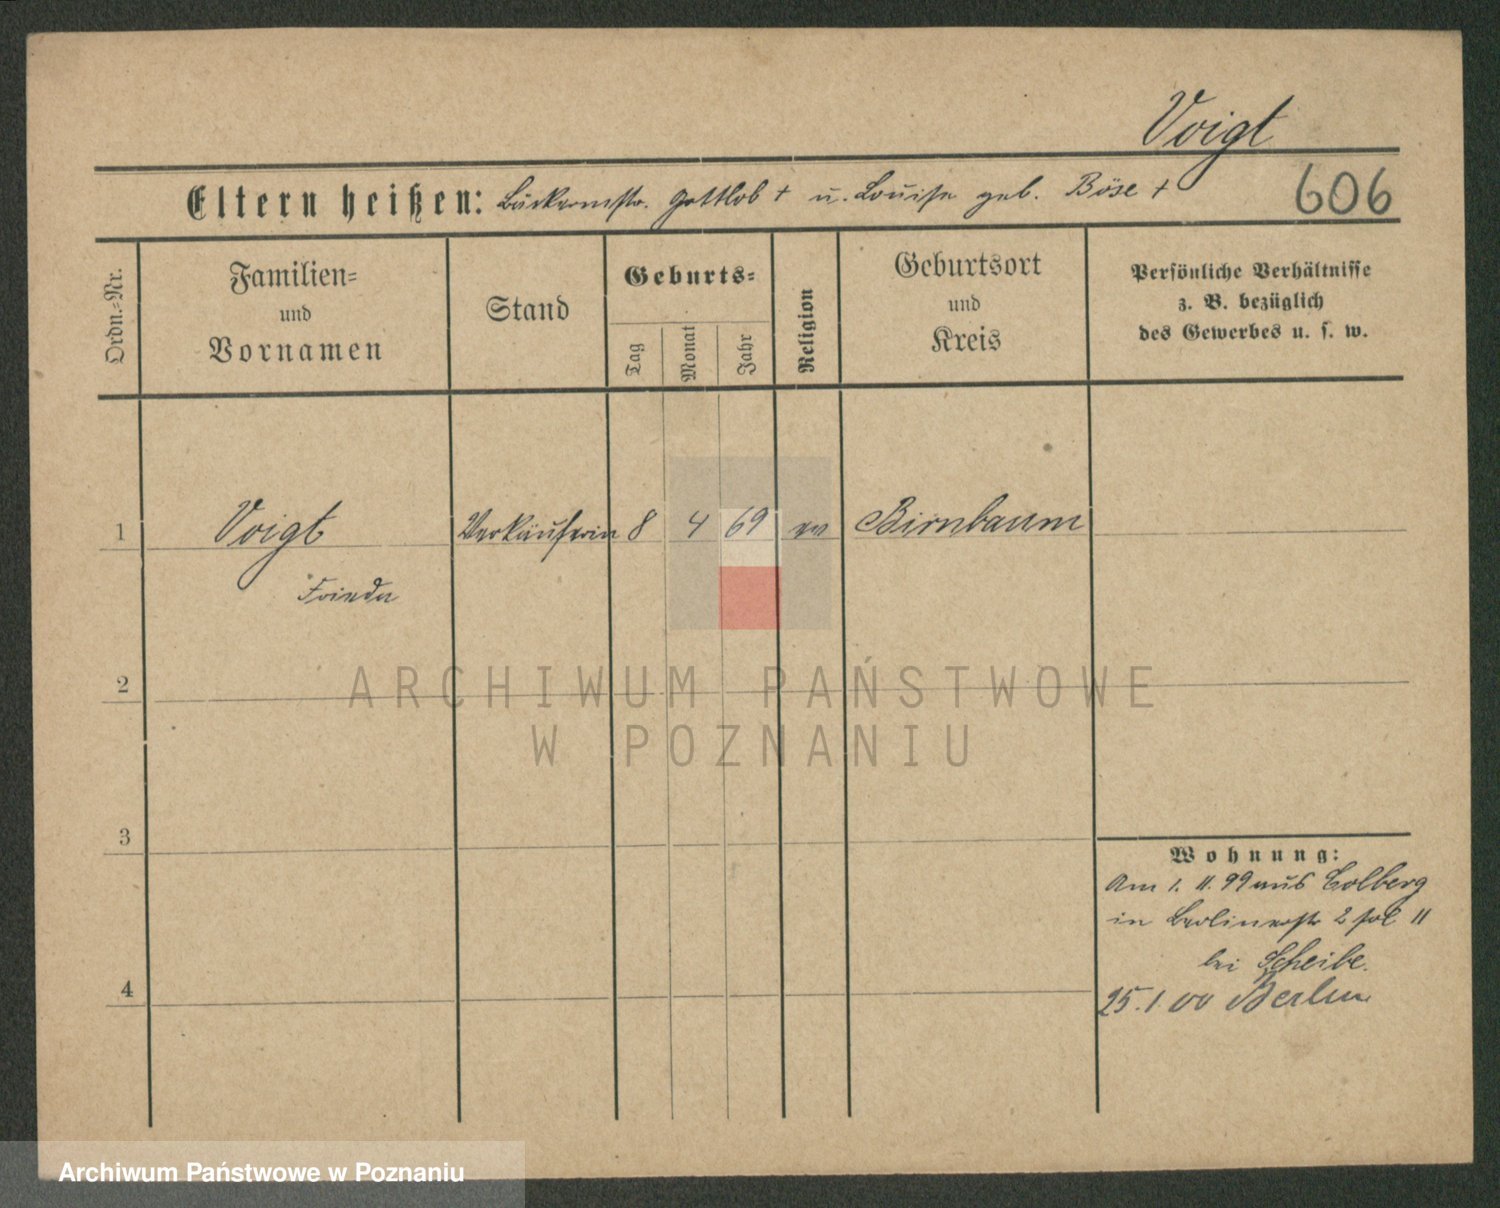 Voigt
Eltern heißen: Bäckermstr. Gottlob + u. Louise geb. Böse +
606
Ordn.-Nr.
Familien-
und
Vornamen
Stand
Geburts-
Tag
Monat
Jahr
Religion
Geburtsort
und
Kreis
Persönliche Verhältnisse
z. B. bezüglich
des Gewerbes u. s. w.
1 Voigt Verkäuferin 8 4 69 ev Birnbaum
Frieda
2
ARCHIWUM PAŃSTWOWE
W POZNANIU
3
Wohnung:
Am 1. 11. 99 aus Colberg
in Berlinerstr 2 II
bei Scheibe.
4
25. 1. 00 Berlin
Archiwum Państwowe w Poznaniu